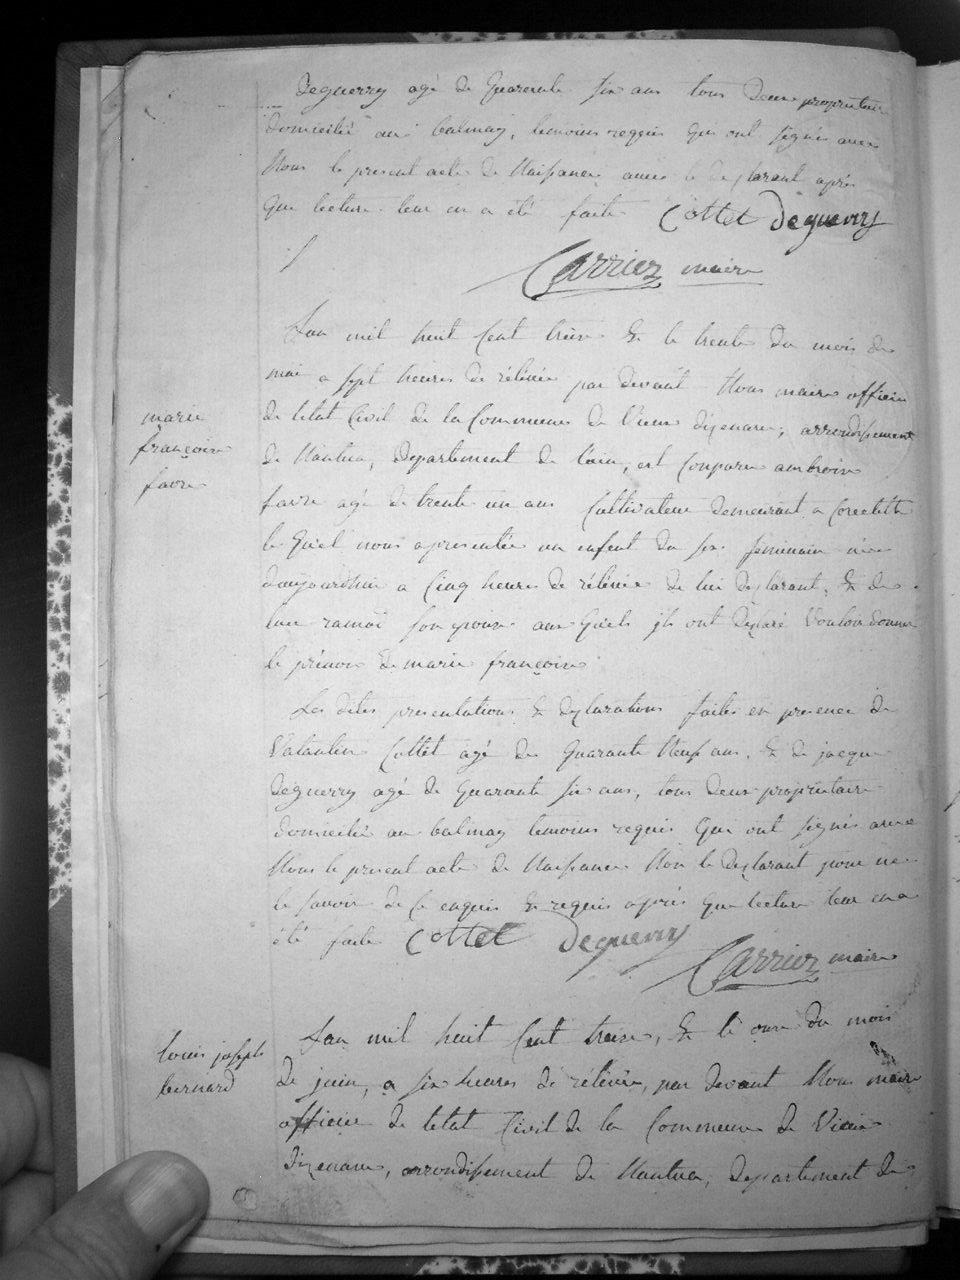 Deguerry agé de Quarente six ans tous deux propriétair
domicilié au balmay, temoins requis Qui ont signés avec
Nous le present acte de Naissance avec le declarant après
Que lecture leur en a été faite Cottet Deguerry
Carrier maire
Lan mil huit Cent treize & le trente du mois de
mai a sept heures de rélévée par devant Nous maire officier
marie
de létat Civil de la Commune de Vieux dizenave, arrondissement
françoise
de Nantua, Departement de l'ain, est Comparu ambroise
favre
favre agé de trente un ans Cultivateur demeurant a
le Quel nous a presentée un enfent du sexe feminain née
daujourdhui a Cinq heures de rélévée de lui declarant, & de
son epouse aux Quels jls ont déclaré Vouloir donner
le prénom de marie françoise
Les dites presentations & declarations faites en presence de
Valantin Cottet agé de Quarante Neuf ans, & de jacque
Deguerry agé de Quarante six ans, tous deux propriétaire
domicilié au balmay temoins requis Qui ont signés avec
Nous le present acte de Naissance Non le declarant pour ne
le savoir de ce enquis & requis après Que lecture leur en a
été faite Cottet Deguerry
Carrier maire
Lan mil huit Cent treize, & le onze du mois
louis joseph
de juin, a six heures de rélévée, par devant Nous maire
bernard
officier de létat Civil de la Commune de Vieux
dizenave, arrondissement de Nantua, Departement de